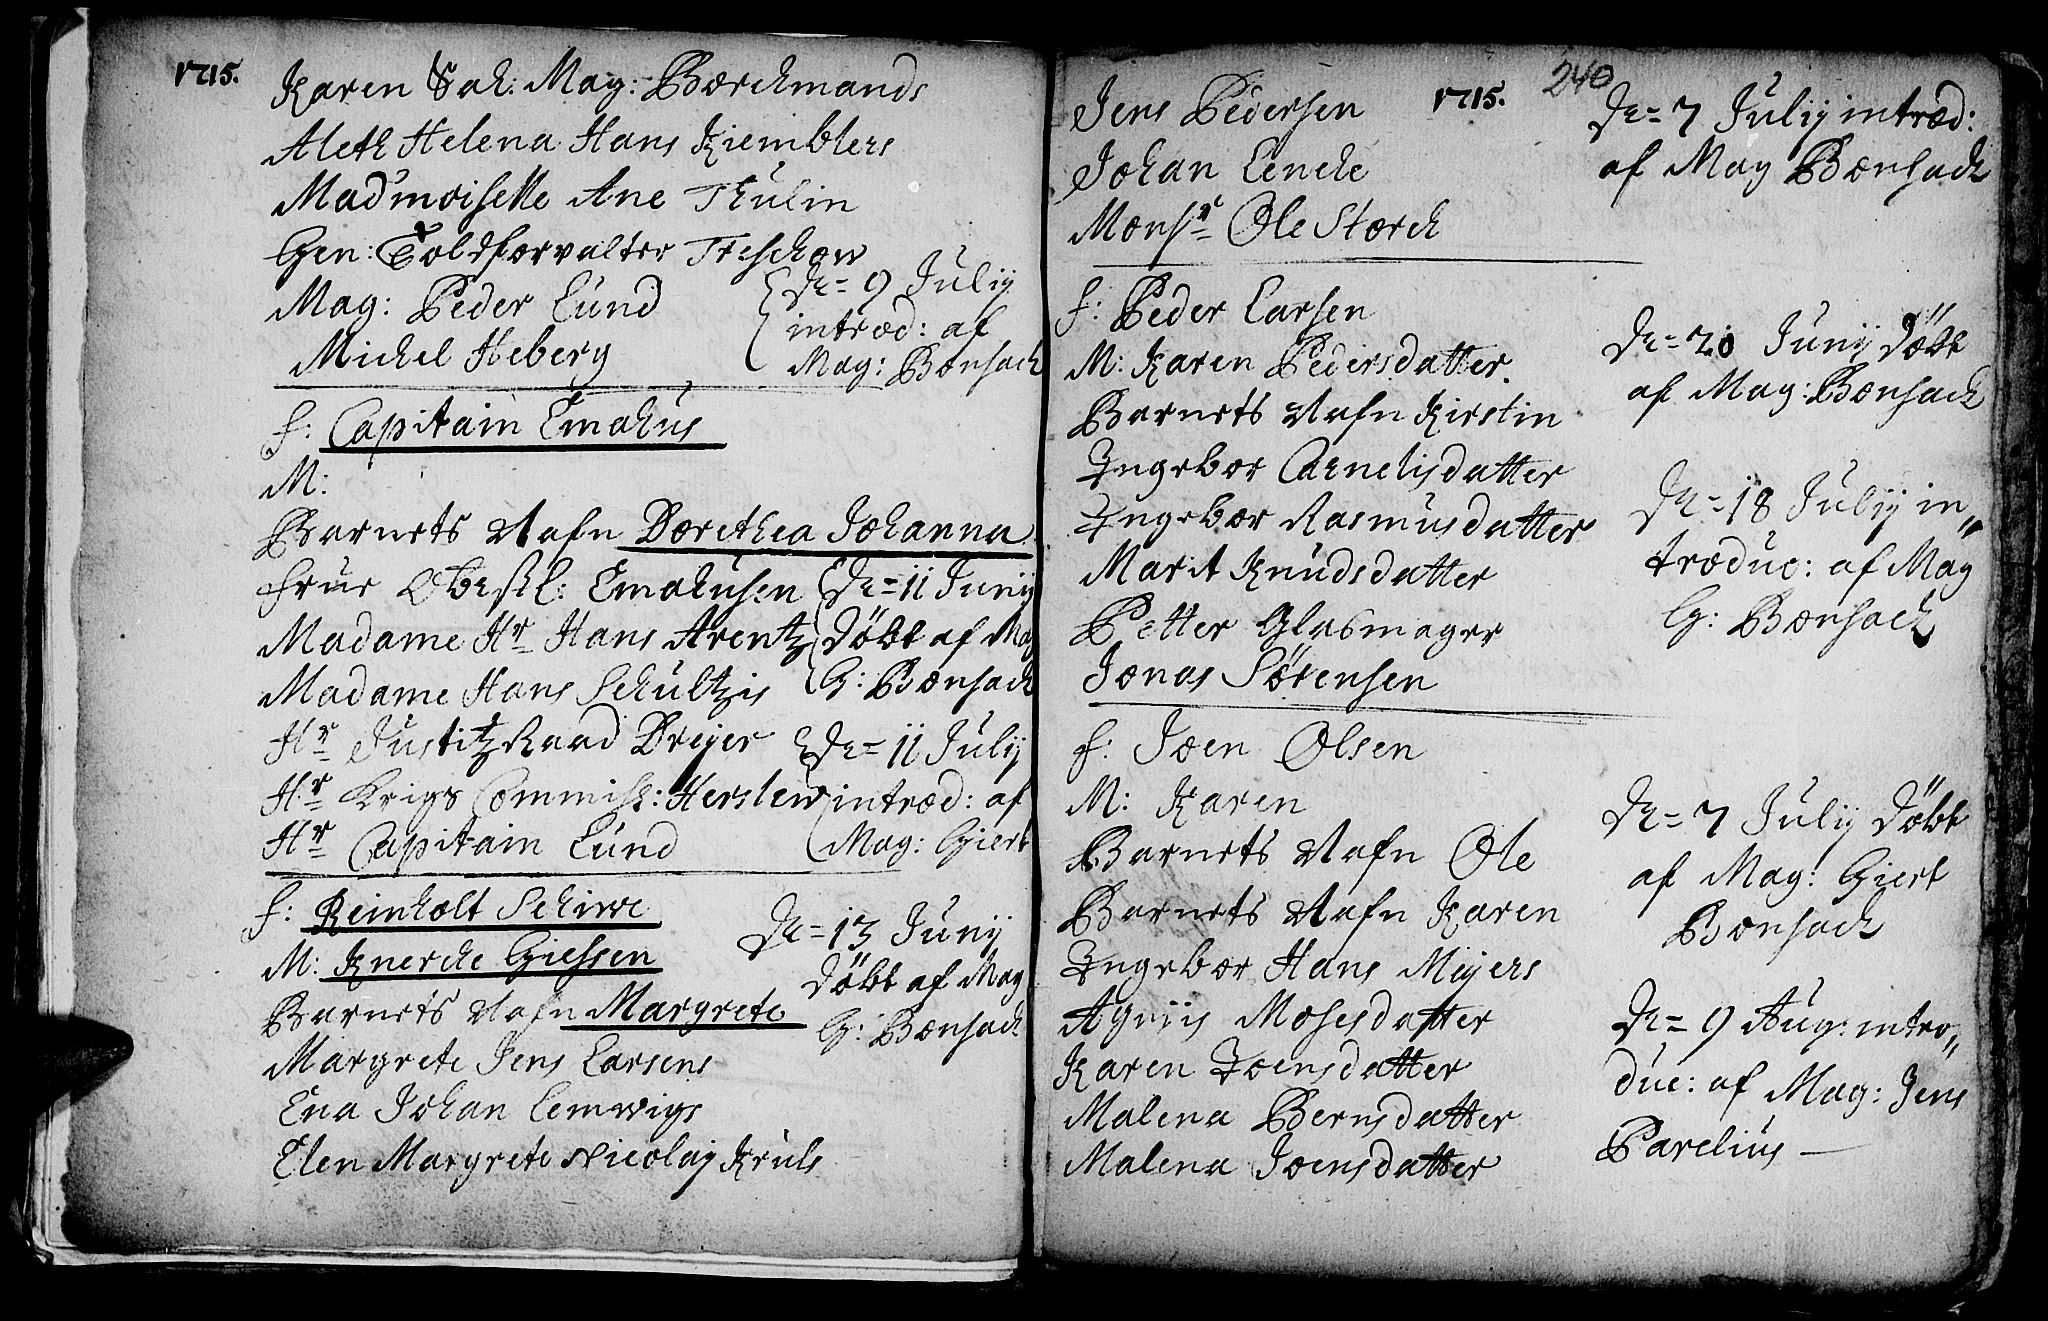 1715.
Karen Sal: Mag: Borchmands
Aleth Helena Hans Kiemblers
Mad'moiselle Ane Thulin
Gen: Toldforvalter Treschow
Mag: Peder Lund
Michel Heberg
D=9 Julij
introd: af
Mag: Bonsach
F: Capitain Emahus
M:
Barnets Nafn Dorethea Johanna
Frue Oberstl: Emahusen
Madame Hr Hans Arentz
Madame Hans Schultzis
Hr JustitzRaad Dreyer
Hr Krigs Commiss: Herslew
Hr Capitain Lund
D=11 Junij
Döbt af Mag
G: Bonsach
D=11 Julij
introd: af
Mag: Giert
F: Reinholt Schiwe
M: Knerche Giessen
Barnets Nafn Margrete
Margrete Jens Larsens
Ena Johan Lemwigs
Elen Margrete Nicolaij Kruls
D=13 Junij
Döbt af Mag
G: Bonsach
1715.
240
Jens Pedersen
Johan Lenche
Monsr Ole Storch
D=7 Julij introd:
af Mag Bonsach
F: Peder Larsen
M: Karen Pedersdatter
Barnets Nafn Kirstin
Ingebor Cornelisdatter
Ingebor Rasmusdatter
Marit Knudsdatter
Petter Glasmager
Jonas Sörensen
D=20 Junij Döbt
af Mag: Bonsach
D=18 Julij in„
troduc: af Mag
G: Bonsach
F: Joen Olsen
M: Karen
Barnets Nafn Ole
Barnets Nafn Karen
Ingebor Hans Mijers
Agnijs Mosesdatter
Karen Joensdatter
Malena Bernsdatter
Malena Joensdatter
D=7 Julij Döbt
af Mag: Giert
Bonsach
D=9 Aug: intro„
duc: af Mag: Jens
Parelius